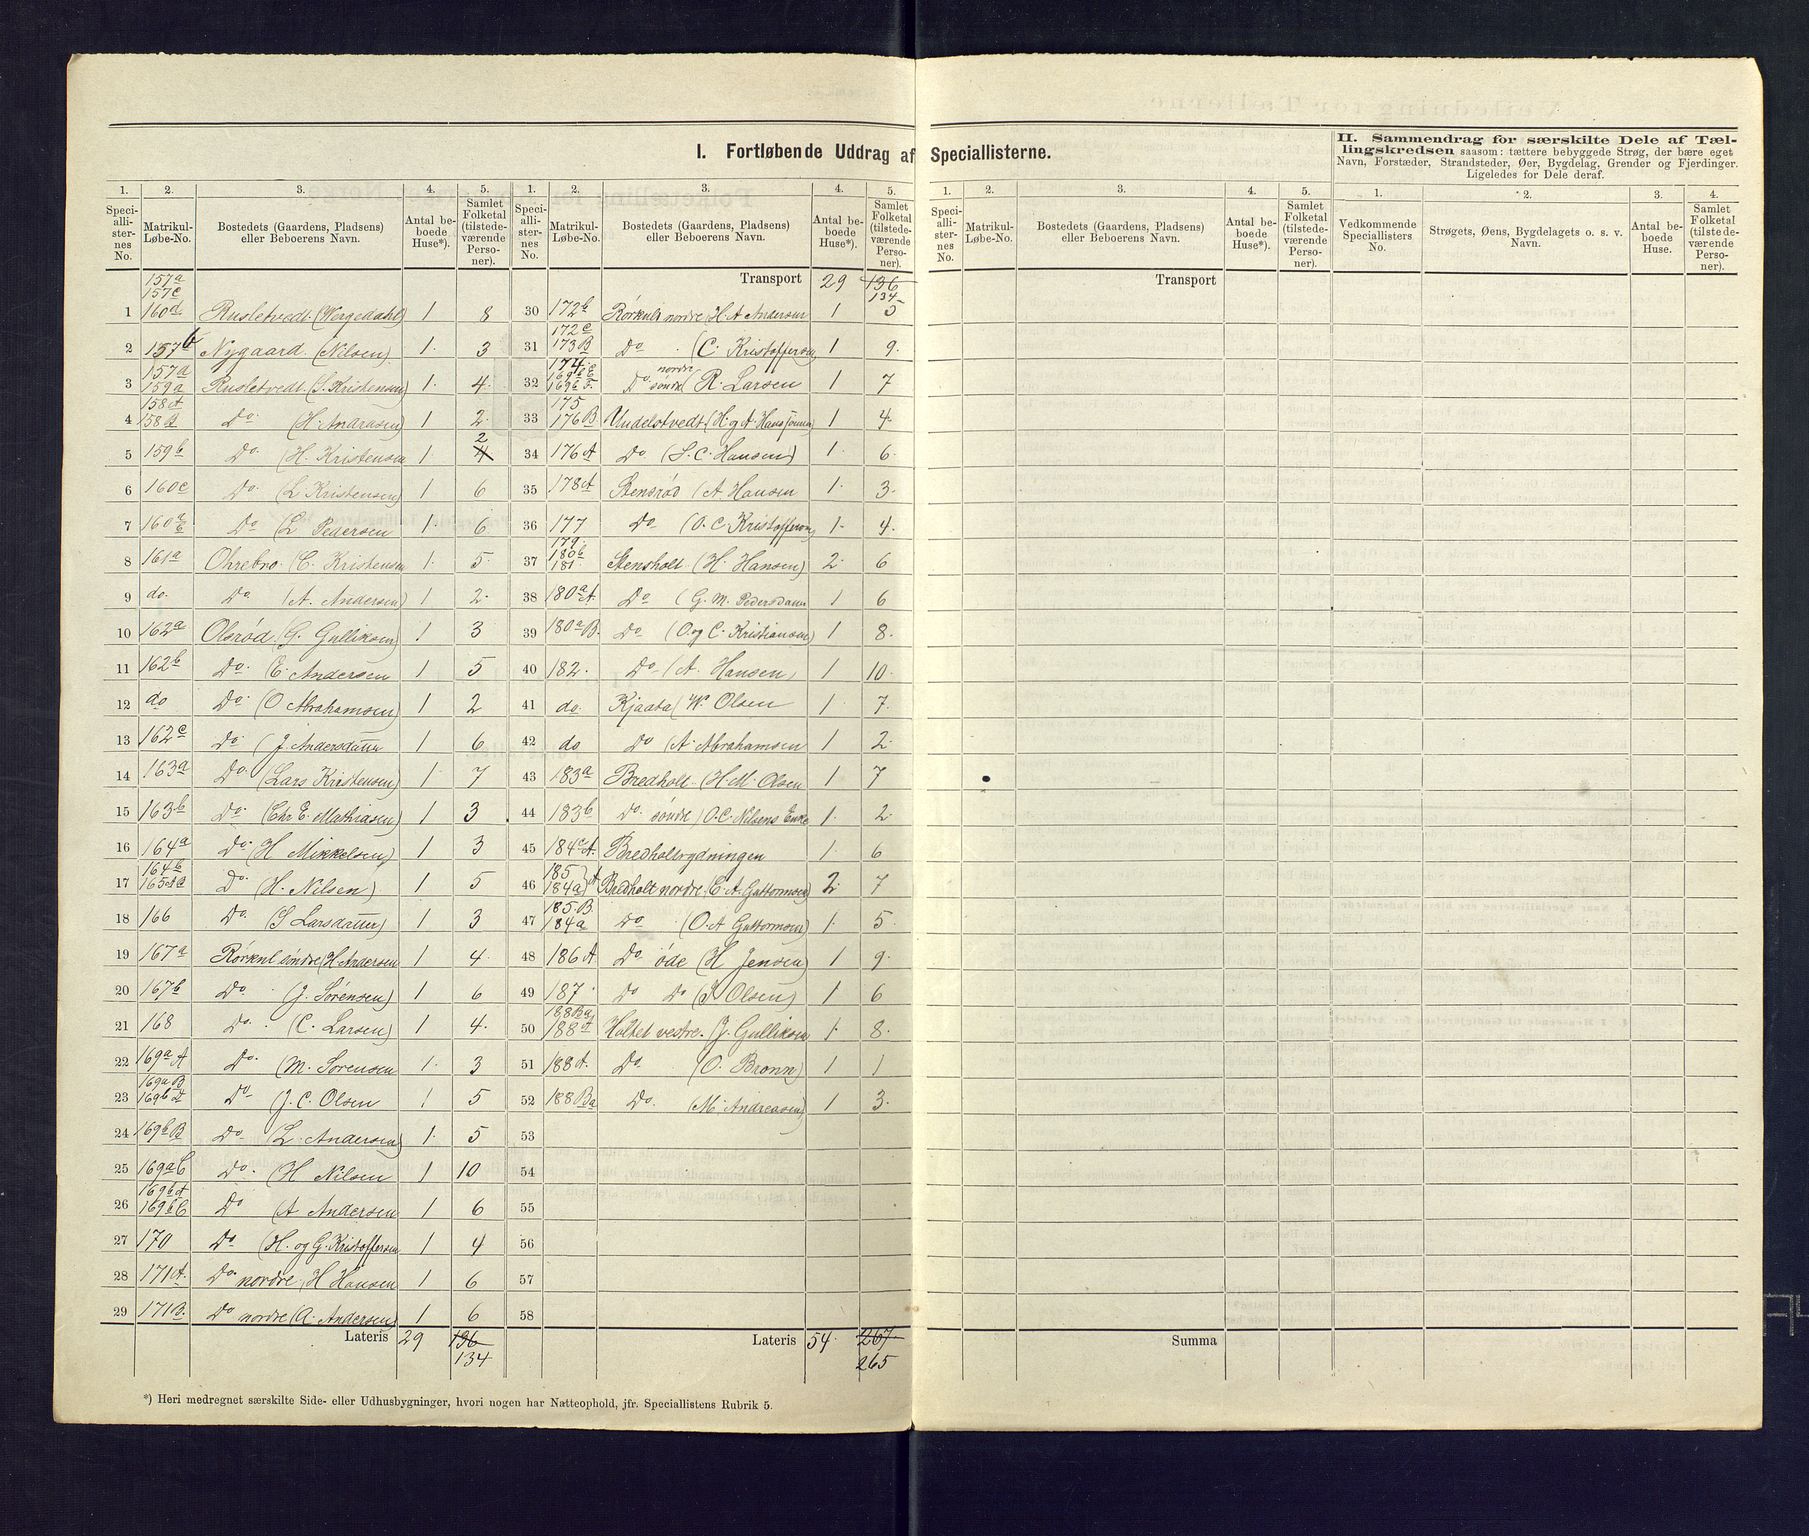 I. Fortløbende Uddrag af Speciallisterne.
II. Sammendrag for særskilte Dele af Tællingskredsen saasom: tættere bebyggede Strøg, der bære eget
Navn, Forstæder, Strandsteder, Øer, Bygdelag, Grender og Fjerdinger.
Ligeledes for Dele deraf.
1. 2. 3. 4. 5. 1. 2. 3. 4. 5. 1. 2. 3. 4. 5. 1. 2. 3. 4.
Speciallisternes No. Matrikul-Løbe-No. Bostedets (Gaardens, Pladsens) eller Beboerens Navn. Antal beboede Huse*). Samlet Folketal (tilstedeværende Personer).
Speciallisternes No. Matrikul-Løbe-No. Bostedets (Gaardens, Pladsens) eller Beboerens Navn. Antal beboede Huse*). Samlet Folketal (tilstedeværende Personer).
Speciallisternes No. Matrikul-Løbe-No. Bostedets (Gaardens, Pladsens) eller Beboerens Navn. Antal beboede Huse*). Samlet Folketal (tilstedeværende Personer).
Vedkommende Speciallisters No. Strøgets, Øens, Bygdelagets o. s. v. Navn. Antal beboede Huse. Samlet Folketal (tilstedeværende Personer).
1 157a 157c 160d Rusletvedt (Wergedahl) 1 8
2 157b Nygaard (Nilsen) 1 3
3 157d 159a Rusletvedt (S. Kristensen) 1 4
4 158A Do (H. Andrasen) 1 2
5 159b Do (H. Kristensen 1 4 2
6 160c Do (L Kristensen) 1 6
7 160 Do (L Pedersen 1 6
8 161a Ohrebro (C. Kristensen 1 5
9 do Do (A. Andersen) 1 2
10 162a Olsrød (G. Gulliksen) 1 3
11 162b Do (E. Andersen 1 5
12 do Do (O Abrahamsen) 1 2
13 162c Do (J. Andersdatter 1 6
14 163a Do (Lars Kristensen) 1 7
15 163b Do (Chr E. Mathiasen) 1 3
16 164a Do (H Mikkelsen) 1 3
17 164b 165 Do (H. Nilsen) 1 5
18 166 Do (S Larsdatter) 1 3
19 167a Rørkul søndre (H. Andersen 1 4
20 167b Do (J. Sørensen) 1 6
21 168 Do (C. Larsen) 1 4
22 169aA Do (M. Sørensen 1 3
23 169aB 169bD Do (J. C. Olsen 1 5
24 169bB Do (L. Andersen) 1 5
25 169aC Do (H Nilsen 1 10
26 169bA 169bC Do (A Andersen 1 6
27 170 Do (H. og G. Kristoffersen 1 4
28 171A Do nordre (H Hansen 1 6
29 171B Do nordre (A. Andersen) 1 6
Lateris 29 136 134
Transport 29 136 134
30 172b Rørkul nordre (H. A Andersen 1
31 172c 173B Do (C. Kristoffersen 1 9
32 174 Do nordre søndre R. Larsen 1 7
33 175 176B Undelstvedt (H. og A Hans 1 4
34 176A Do (S. C. Hansen) 1 6
35 178A Stensrød (A Hansen 1 3
36 177 Do (O. C. Kristoffersen) 1 4
37 179 180b 181 Stensholt (H. Hansen) 2 6
38 180aA Do (G. M. Pedersdatter 1 6
39 180aB Do (O. og C. Kristiansen) 1 8
40 182 Do (A. Hansen) 1 10
41 do Kjaata (W. Olsen 1 7
42 do Do (A. Abrahamsen 1 2
43 183a Bredholt (H. M. Olsen 1 7
44 183b Do søndre (O. C. Nilsens Enke 1 2
45 184cA Bredholtrydningen 1 6
46 185 184a A Bredholt nordre (E. A. Guttormsen) 2 7
47 185B 184a Do (O. A Guttormsen) 1 5
48 186A Do øde (H Jensen) 1 9
49 187 Do Do (J Olsen) 1 6
50 188Ba 188A Holtet vestre (J. Gulliksen 1 8
51 188A Do (O. Bronn) 1 1
52 188Ba Do (M. Andreasen) 1 3
53
54
55
56
57
58
Lateris 54 267 265
Transport
Summa
*) Heri medregnet særskilte Side- eller Udhusbygninger, hvori nogen har Natteophold, jfr. Speciallistens Rubrik 5.